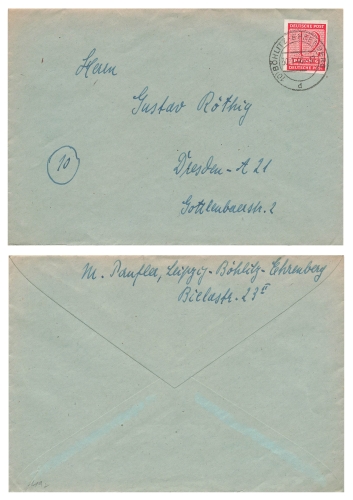 DEUTSCHE POST
BÖHLITZ-EHRENBERG
d
Herrn
Gustav Röthig
10
Dresden-A 21
Gottleubaerstr. 2
M. Panfler, Leipzig-Böhlitz-Ehrenberg
Bielastr. 29 II